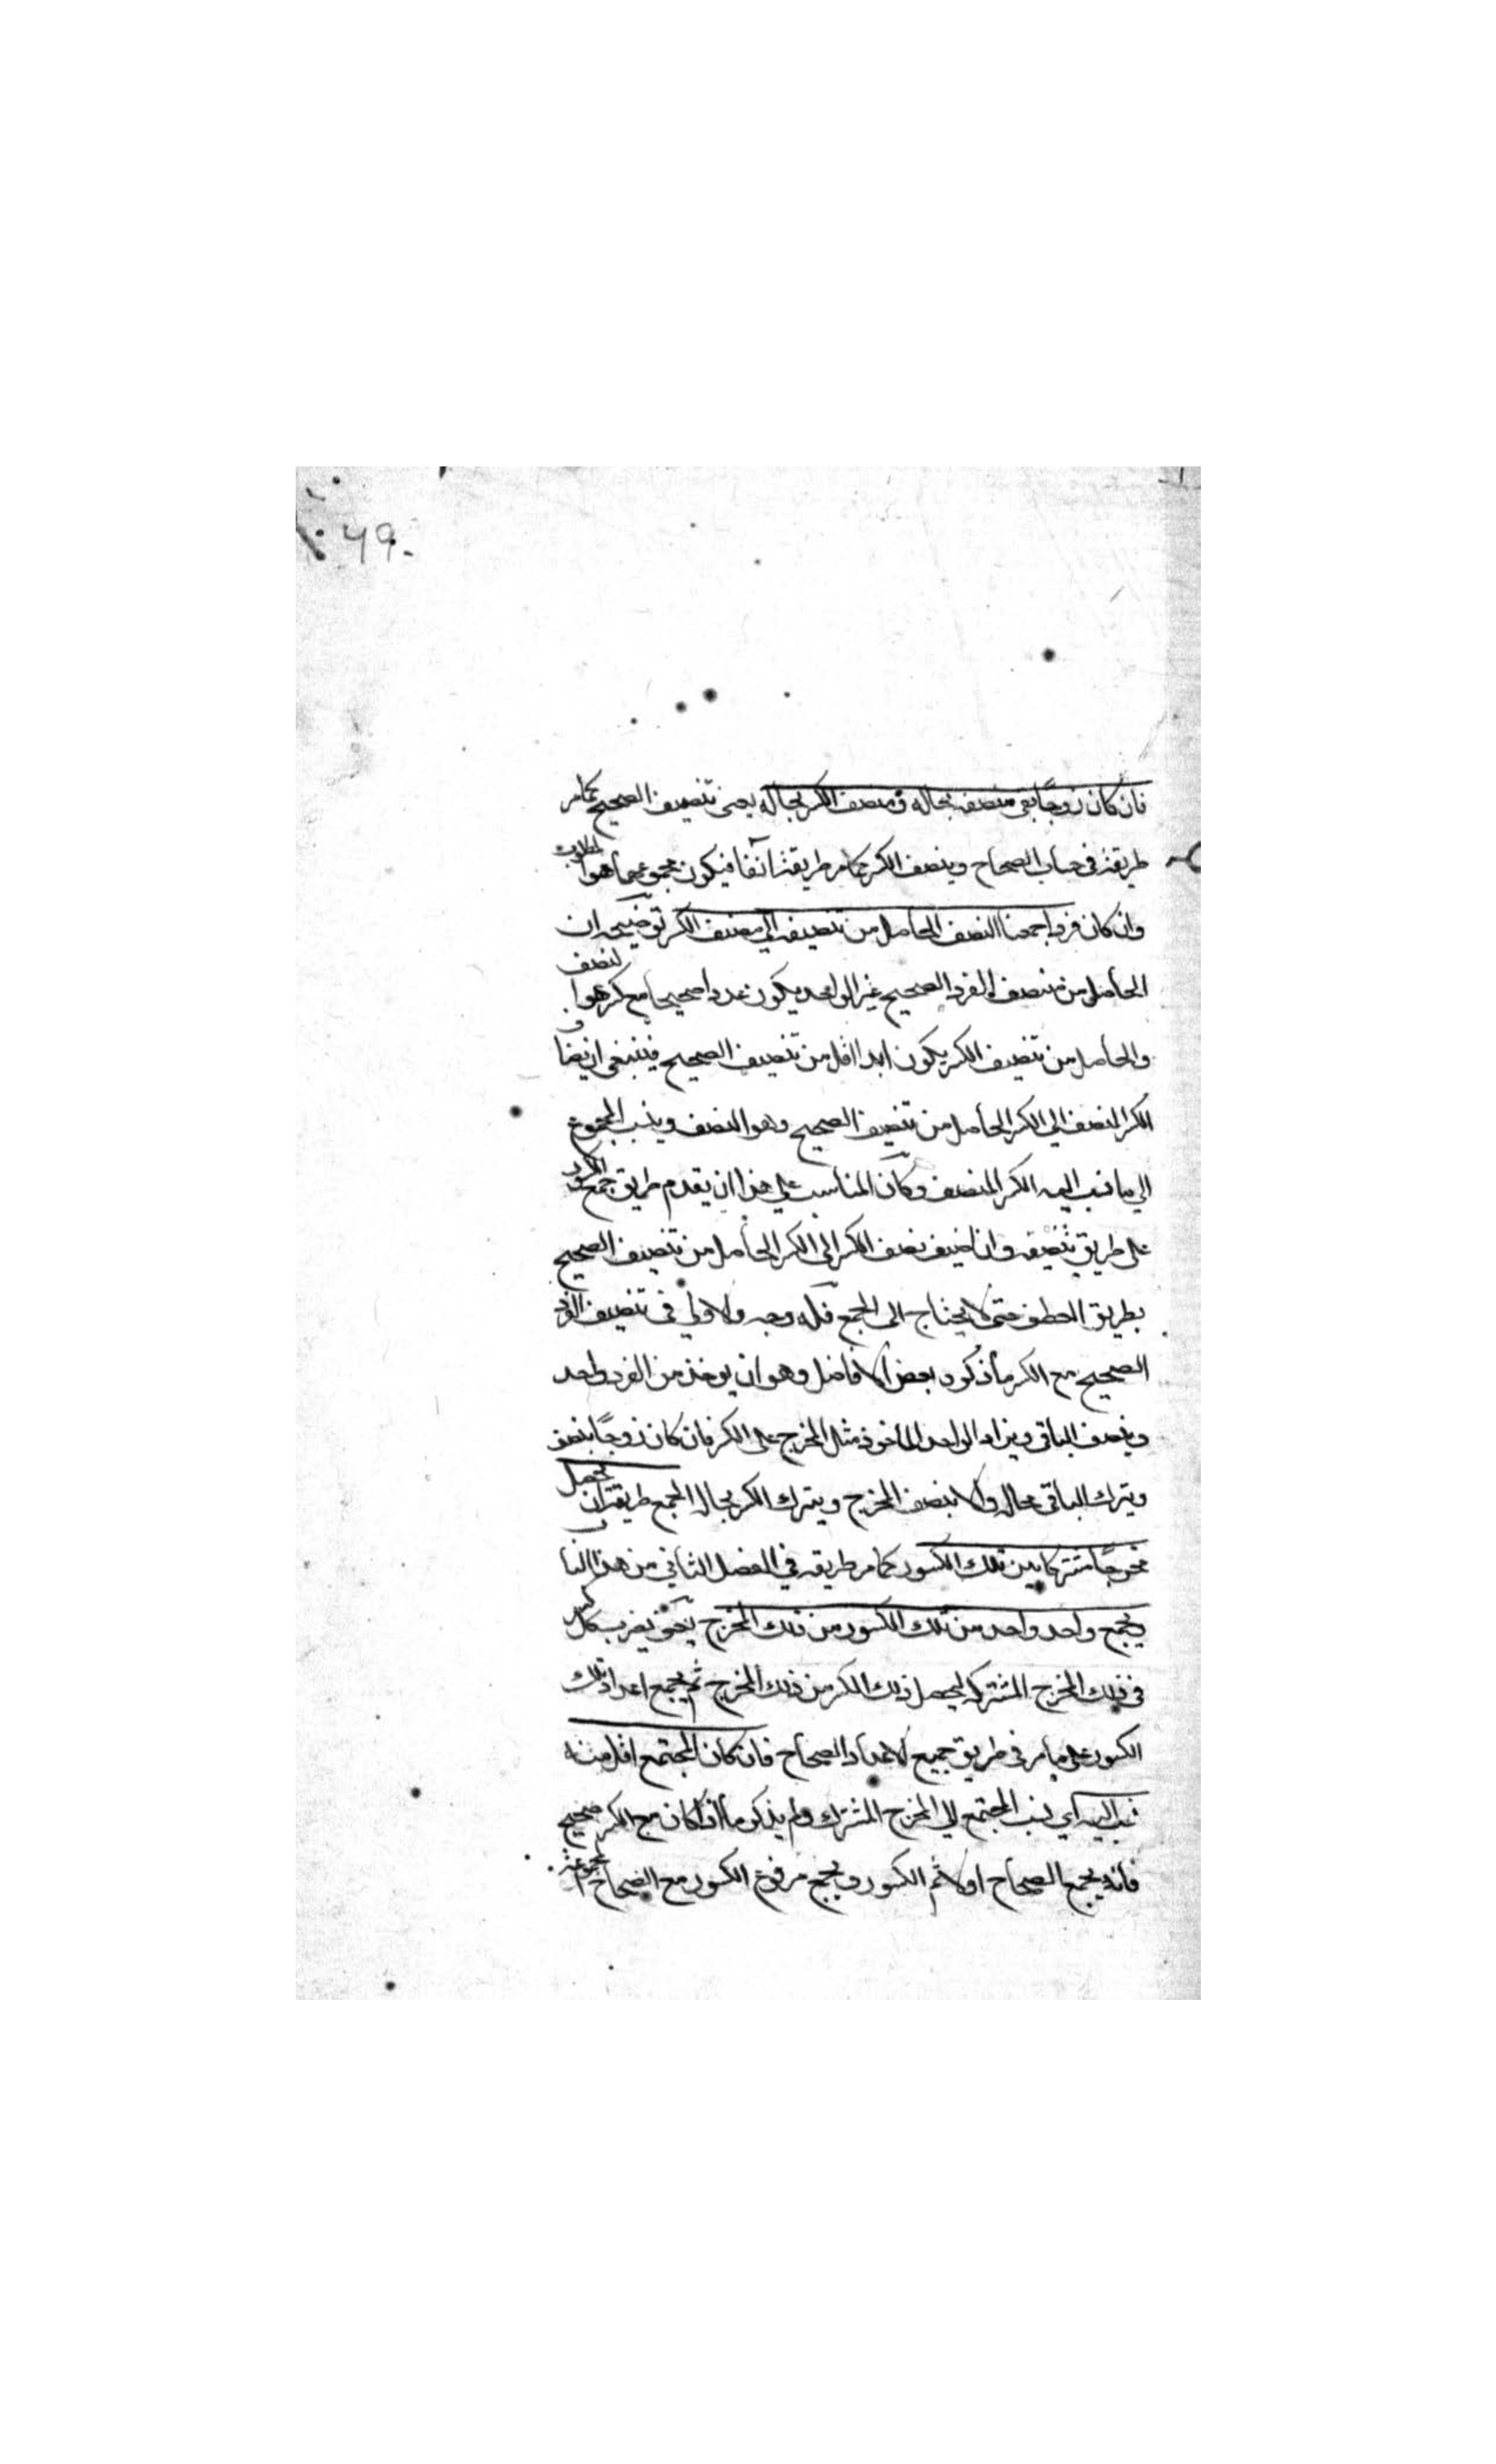 ٤٩
فان كان زوجًا بقي منصفه بحاله ومنصف الكسر بحاله يعني تنصيف الصحيح كما مر
طريقته في حساب الصحاح وينصف الكسر كما مر طريقته آنفا فيكون مجموعهما هو المطلوب
وان كان فردا جمعنا النصف الحاصل من تنصيفه الي منصف الكسر توضيحه ان
الحاصل من تنصيف الفرد الصحيح غير الواحد يكون عددا صحيحا مع كسر هو النصف
والحاصل من تنصيف الكسر يكون ابدا اقل من تنصيف الصحيح فينبغي ان يضاف
الكسر المنصف الي الكسر الحاصل من تنصيف الصحيح وهو النصف وينسب المجموع
الي ما نسب اليه الكسر المنصف وكان المناسب علي هذا ان يقدم طريق جمع الكسور
علي طريق تنصيفه وان اضيف نصف الكسر الي الكسر الحاصل من تنصيف الصحيح
بطريق العطف حتى لا يحتاج الى الجمع فله وجه والاولي في تنصيف الفرد
الصحيح مع الكسر ما ذكره بعض الافاضل وهو ان يوخذ من الفرد واحد
وينصف الباقي ويزاد الواحد الماخوذ مثل المخرج على الكسر فان كان زوجًا ينصف
ويترك الباقي بحاله والا ينصف المخرج ويترك الكسر بحاله الجمع طريقته ان يحصل
مخرجًا مشتركا بين تلك الكسور كما مر طريقه في الفصل الثاني من هذا الباب
ويجمع واحد واحد من تلك الكسور من ذلك المخرج يعني يضرب كل كسر
في ذلك المخرج المشترك ليحصل ذلك الكسر من ذلك المخرج ثم يجمع اعداد تلك
الكسور علي ما مر في طريق جميع الاعداد الصحاح فان كان المجتمع اقل منه
نسب اليه اي نسب المجتمع الي المخرج المشترك ولم يذكر ما اذا كان مع الكسر صحيح
فانه يجمع الصحاح اولا ثم الكسور ويجمع مرفوع الكسور مع الصحاح المجموعة